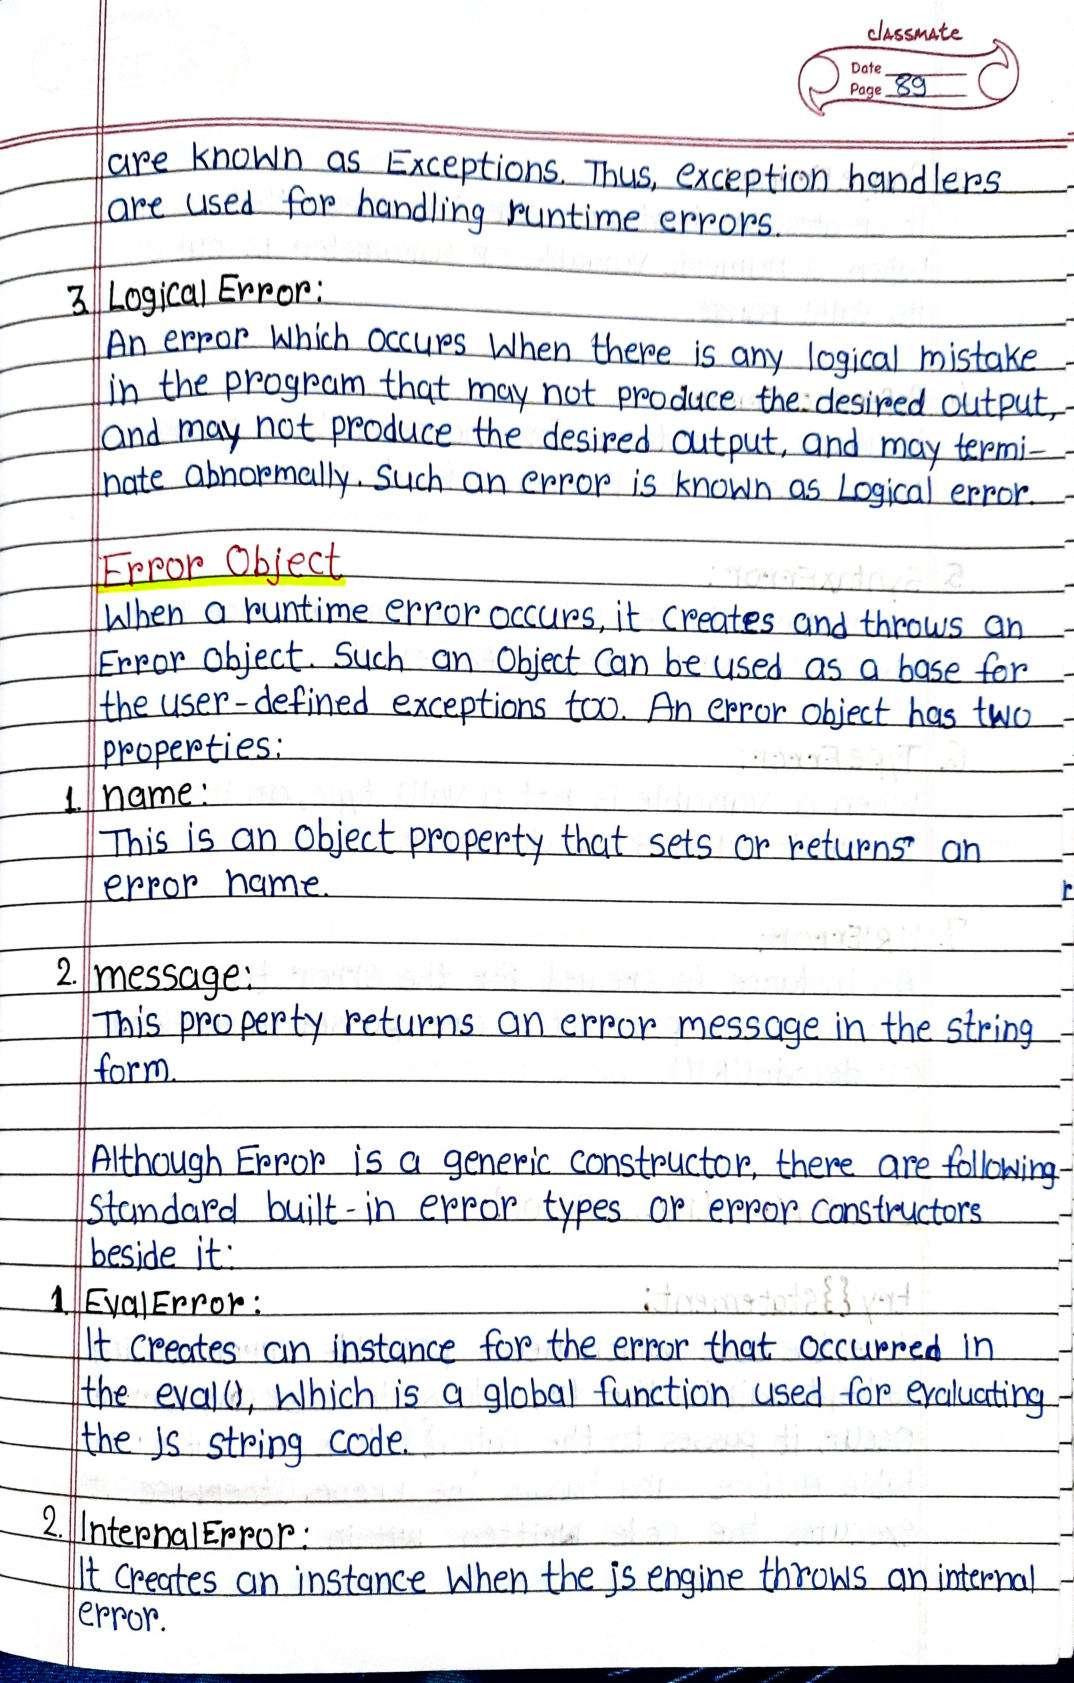 classmate
Date
Page 89
are known as Exceptions. Thus, exception handlers
are used for handling runtime errors.
3. Logical Error:
An error which occurs when there is any logical mistake
in the program that may not produce the desired output,
and may not produce the desired output, and may termi-
nate abnormally. Such an error is known as Logical error.
Error Object
When a runtime error occurs, it creates and throws an
Error object. Such an object can be used as a base for
the user-defined exceptions too. An error object has two
properties:
1. name:
This is an object property that sets or returns an
error name.
2. message:
This property returns an error message in the string
form.
Although Error is a generic constructor, there are following
standard built-in error types or error constructors
beside it:
1. EvalError:
It creates an instance for the error that occurred in
the eval(), which is a global function used for evaluating
the js string code.
2. InternalError:
It creates an instance when the js engine throws an internal
error.